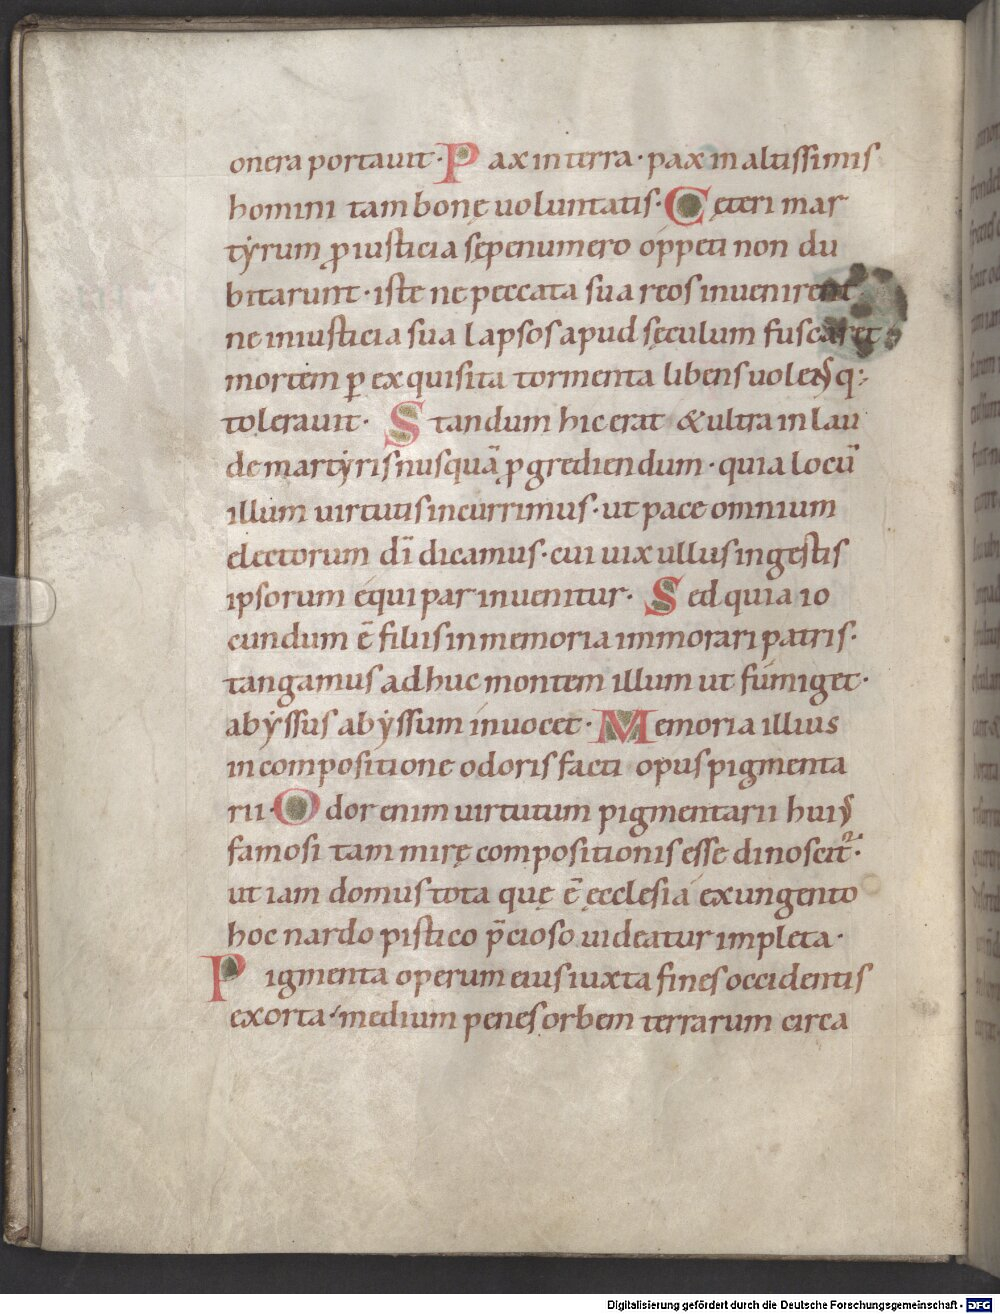 onera portauit · Pax in terra · pax in altissimis
homini tam bonę uoluntatis · Cęteri mar
tẏrum ꝓ iusticia sępenumero oppeti non du
bitarunt · iste ne peccata sua reos inuenirent
ne iniusticia sua lapsos apud sęculum fuscaret
mortem ꝑ exquisita tormenta libens uolensq;
tolerauit · Standum hic erat & ultra in lau
de martẏris nusquā ꝓgrediendum · quia locū
illum uirtutis incurrimus · ut pace omnium
electorum dī dicamus · cui uix ullus in gestis
ipsorum equipar inuenitur · Sed quia io
cundum ē filiis in memoria immorari patris ·
tangamus adhuc montem illum ut fumiget ·
abẏssus abẏssum inuocet · Memoria illius
in compositione odoris facti opus pigmenta
rii · Odor enim uirtutum pigmentarii hui᷒
famosi tam mirę compositionis esse dinoscit᷑ ·
ut iam domus tota quę ē ęcclesia ex ungento
hoc nardo pistico p̄cioso uideatur impleta ·
Pigmenta operum eius iuxta fines occidentis
exorta · medium penes orbem terrarum circa
Digitalisierung gefördert durch die Deutsche Forschungsgemeinschaft - DFG